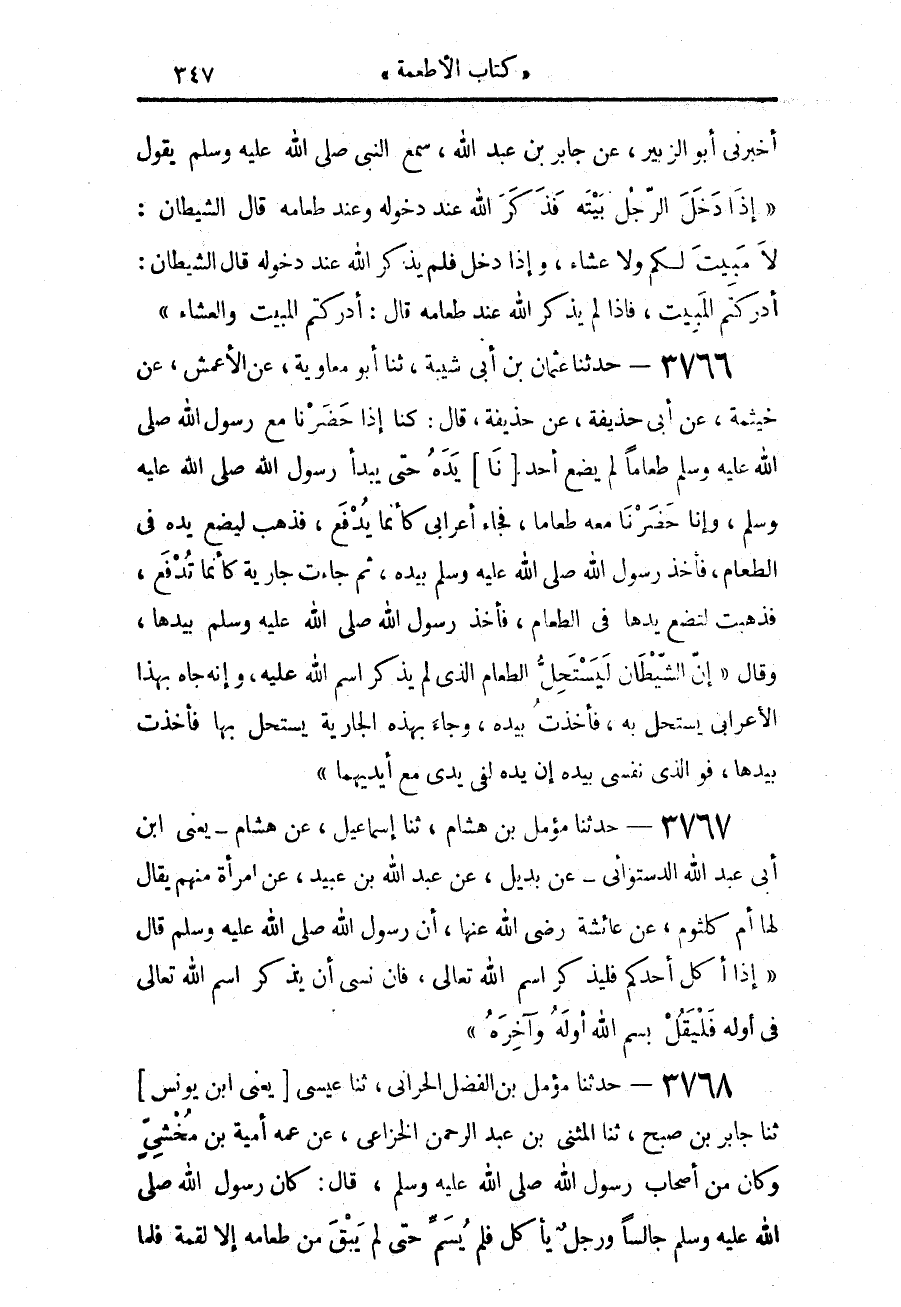 « كتاب الأطعمة » ٣٤٧
أخبرنى أبو الزبير ، عن جابر بن عبد الله ، سمع النبى صلى الله عليه وسلم يقول
« إذَا دَخَلَ الرّجُلُ بَيْتَه فَذَكَرَ الله عند دخوله وعند طعامه قال الشيطان :
لاَ مَبِيتَ لـكم ولا عشاء ، وإذا دخل فلم يذكر الله عند دخوله قال الشيطان :
أدركتم المَبِيت ، فاذا لم يذكر الله عند طعامه قال : أدركتم المبيت والعشاء »
٣٧٦٦ — حدثنا عثمان بن أبى شيبة ، ثنا أبو معاوية ، عن الأعمش ، عن
خيثمة ، عن أبى حذيفة ، عن حذيفة ، قال : كنا إذا حَضَرْنا مع رسول الله صلى
الله عليه وسلم طعاماً لم يضع أحد [ نَا ] يَدَهُ حتى يبدأ رسول الله صلى الله عليه
وسلم ، وإنا حَضَرْنَا معه طعاما ، فجاء أعرابى كأنما يُدْفَع ، فذهب ليضع يده فى
الطعام ، فأخذ رسول الله صلى الله عليه وسلم بيده ، ثم جاءت جارية كأنما تُدْفَع ،
فذهبت لتضع يدها فى الطعام ، فأخذ رسول الله صلى الله عليه وسلم بيدها ،
وقال « إنّ الشّيْطَان لَيَسْتَحِلُّ الطعام الذى لم يذكر اسم الله عليه ، وإنه جاء بهذا
الأعرابى يستحل به ، فأخذتُ بيده ، وجاءَ بهذه الجارية يستحل بها فأخذت
بيدها ، فو الذى نفسى بيده إن يده لفى يدى مع أيديهما »
٣٧٦٧ — حدثنا مؤمل بن هشام ، ثنا إسماعيل ، عن هشام ـ يعنى ابن
أبى عبد الله الدستوائى ـ عن بديل ، عن عبد الله بن عبيد ، عن امرأة منهم يقال
لها أم كلثوم ، عن عائشة رضى الله عنها ، أن رسول الله صلى الله عليه وسلم قال
« إذا أكل أحدكم فليذكر اسم الله تعالى ، فان نسى أن يذكر اسم الله تعالى
فى أوله فَلْيَقُلْ بسم الله أولَهُ وَآخِرَهُ »
٣٧٦٨ — حدثنا مؤمل بن الفضل الحرانى ، ثنا عيسى [ يعنى ابن يونس ]
ثنا جابر بن صبح ، ثنا المثنى بن عبد الرحمن الخزاعى ، عن عمه أمية بن مُخْشِيٍّ
وكان من أصحاب رسول الله صلى الله عليه وسلم ، قال : كان رسول الله صلى
الله عليه وسلم جالساً ورجلٌ يأكل فلم يُسَمِّ حتى لم يَبْقَ من طعامه إلا لقمة فلما